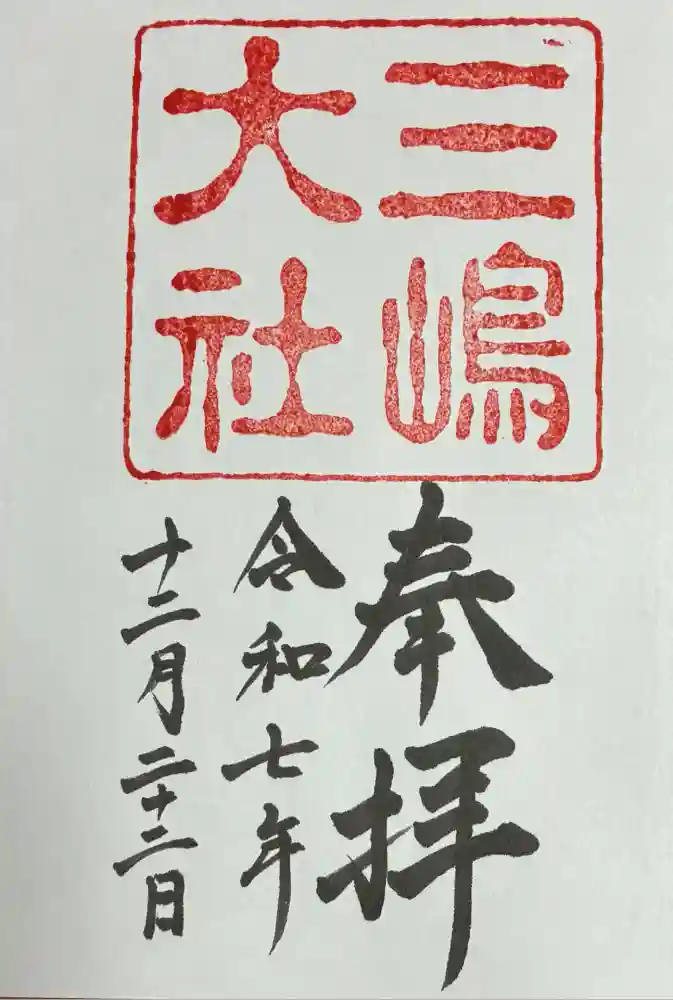 三嶋
大社
奉拝
令和七年
十二月二十二日